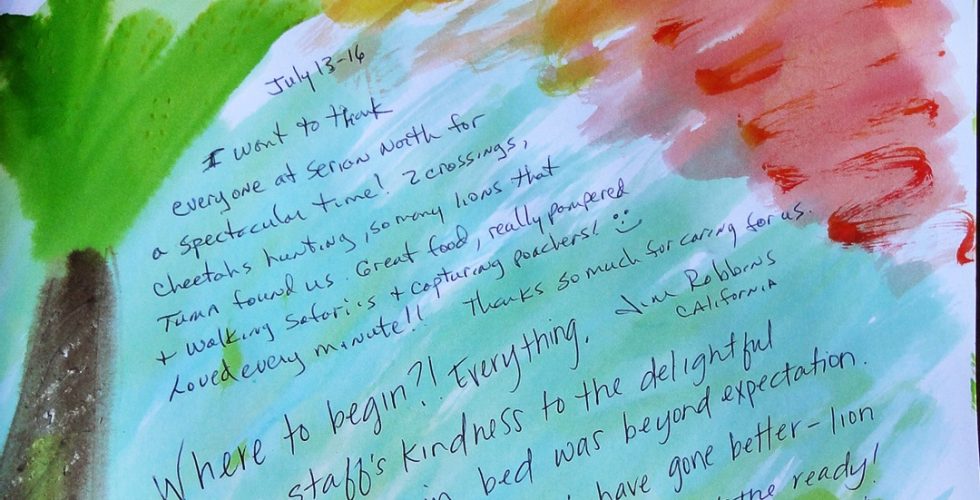 July 13-16
I want to thank
everyone at Serian North for
a spectacular time! 2 crossings,
cheetahs hunting, so many lions that
found us. Great food, really pampered
+ walking safari's + capturing poachers! :)
Loved every minute!! Thanks so much for caring for us.
Robbins
CALIFORNIA
Where to begin?! Everything.
staff's kindness to the delightful
in bed was beyond expectation.
have gone better - lion
the ready!